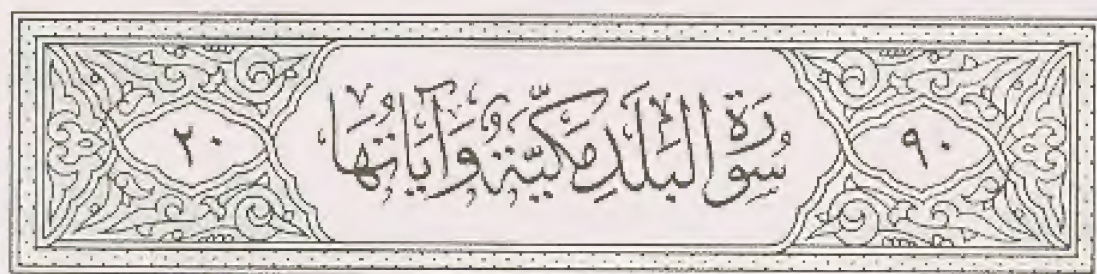 ٩٠ سُورَةُ البَلَدِ مَكِّيَّة وَآيَاتُهَا ٢٠